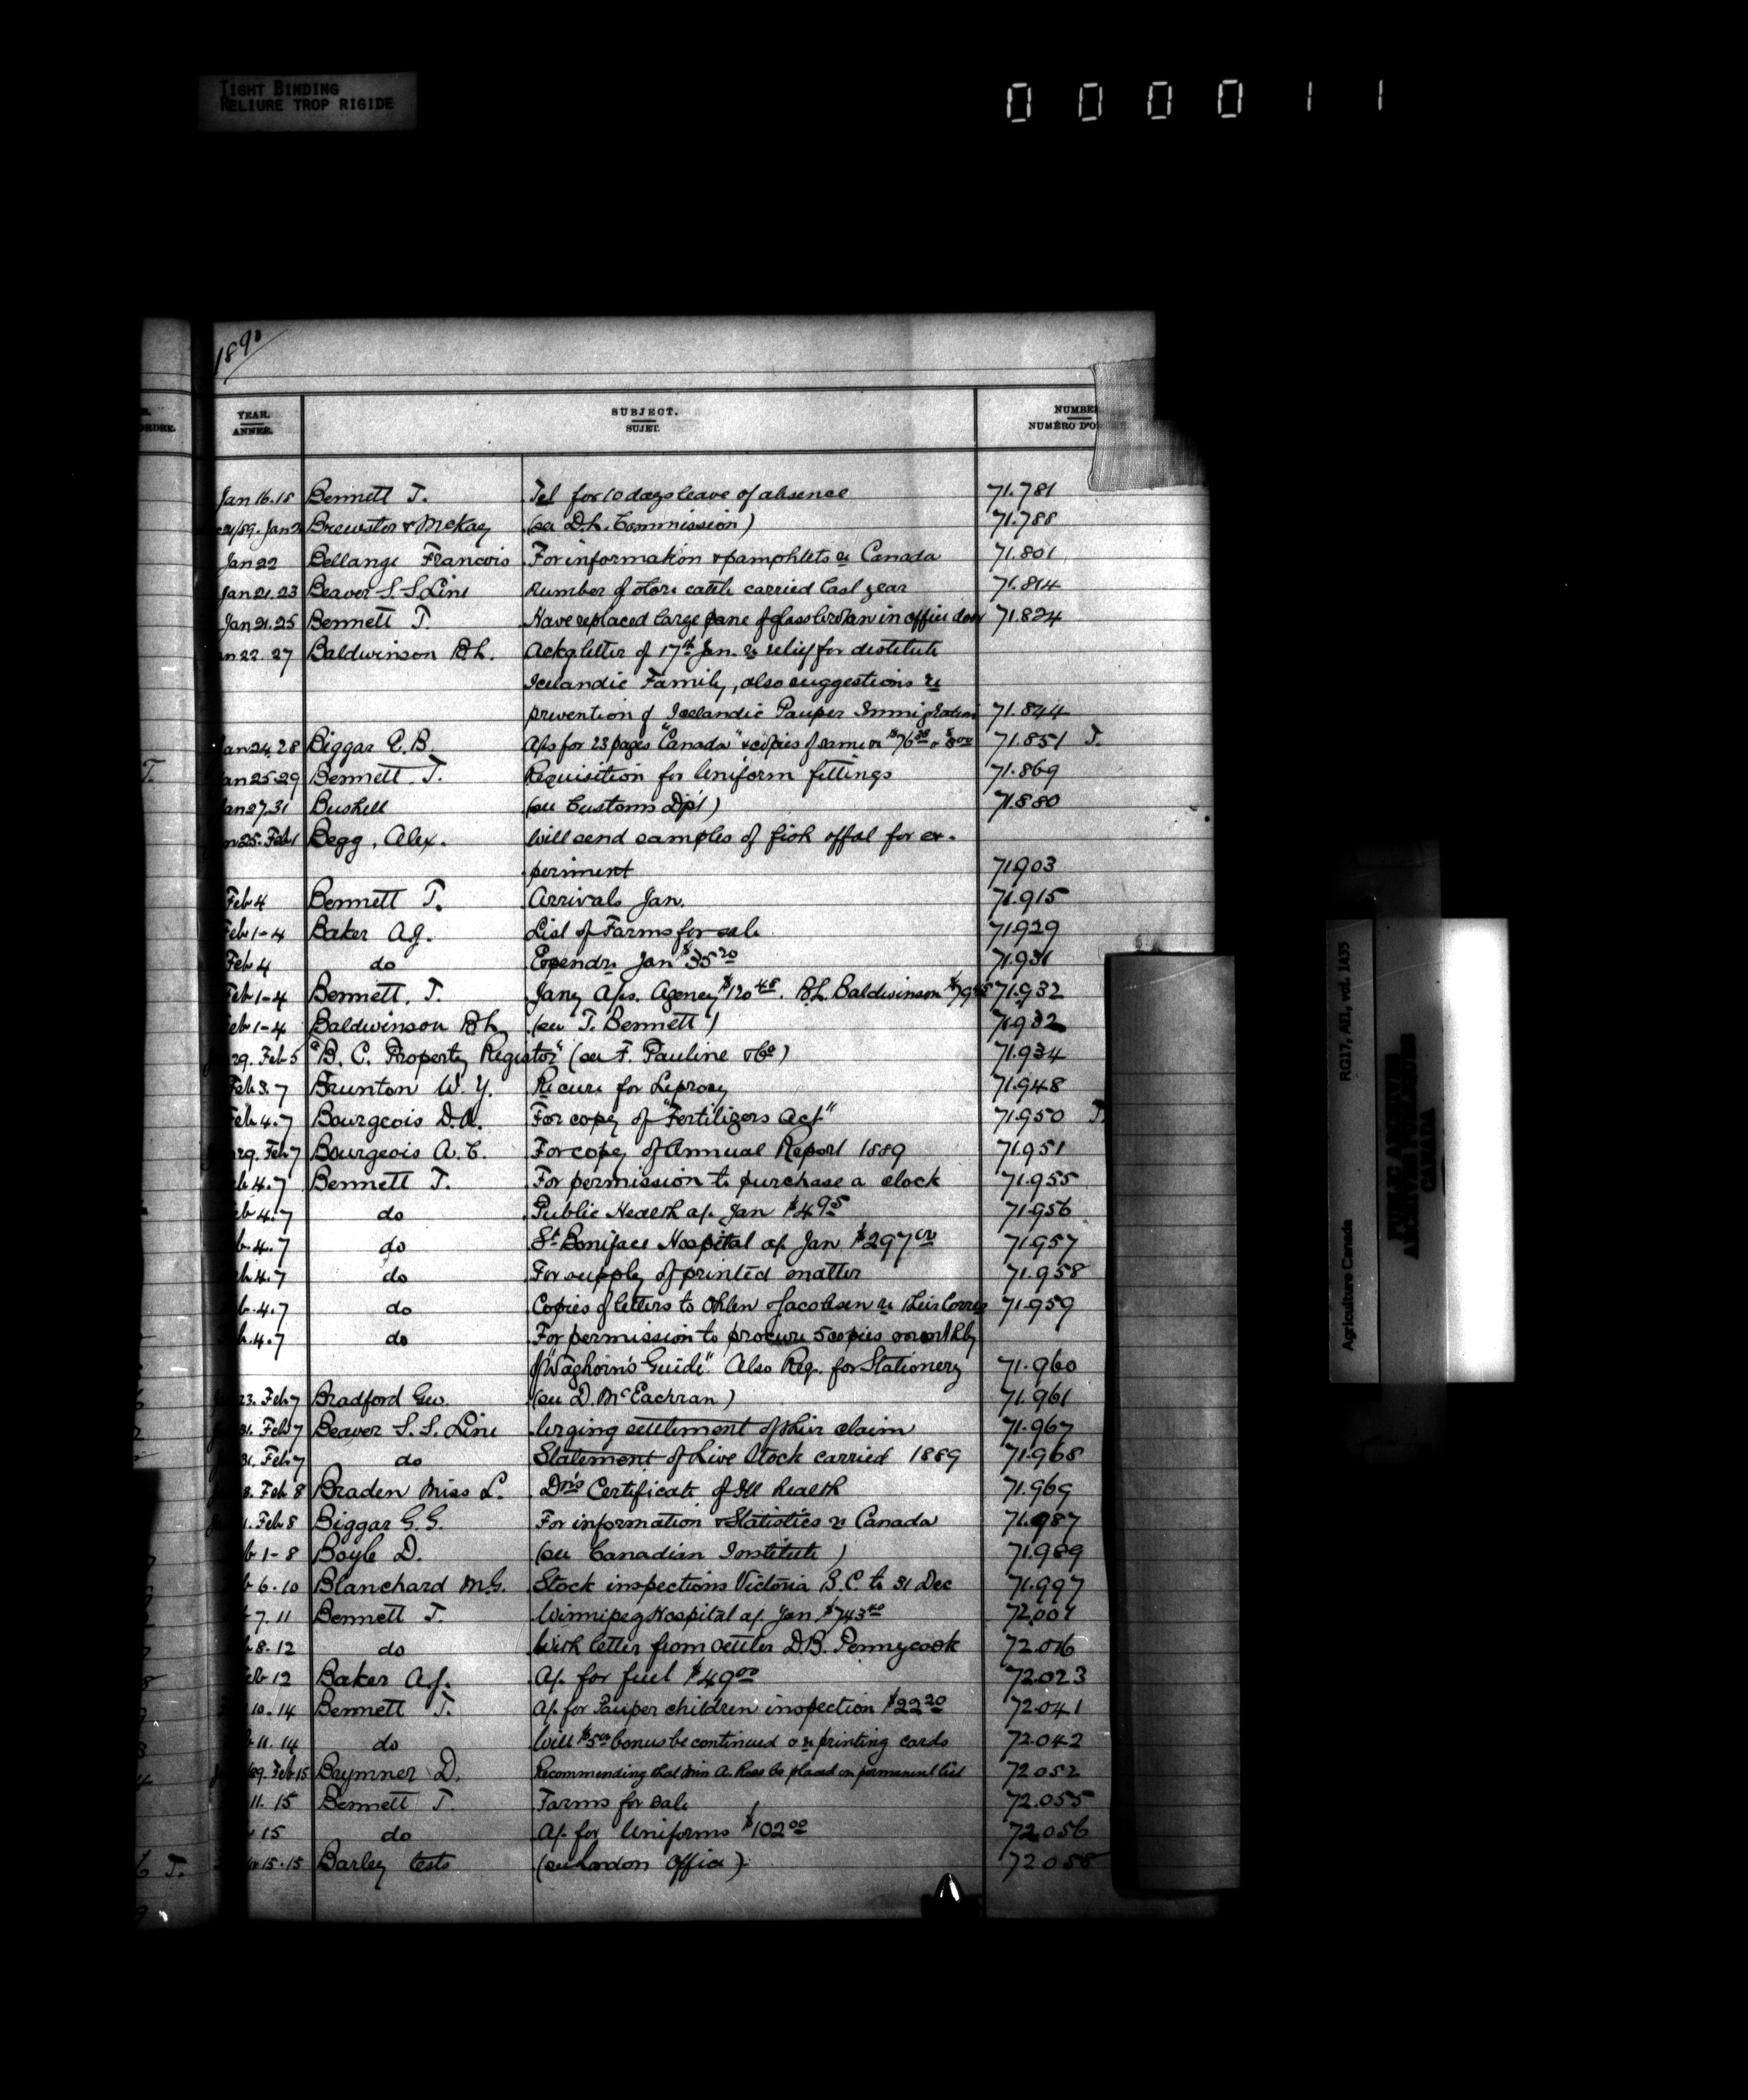 TIGHT BINDING
RELIURE TROP RIGIDE
000011
1890
YEAR.
ANNÉE.
SUBJECT.
SUJET.
NUMBER
NUMÉRO D'O
ORDRE.
Jan 16.18 Bennett J. Tel for 10 days leave of absence 71.781
/89. Jan 2 Brewster & McKay (see D.L. Commission) 71.788
Jan 22 Bellange Francois For information & pamphlets re Canada 71.801
Jan 21.23 Beaver S.S Line Number of store cattle carried last year 71.814
Jan 21.25 Bennett T. Have replaced large pane of glass broken in office door 71.824
an 22.27 Baldwinson B.L. Ackg letter of 17th Jan. re relief for destitute
Icelandic Family, also suggestions re
prevention of Icelandic Pauper Immigration 71.844
Jan 24.28 Biggar E.B. A/cs for 23 pages "Canada" & copies of same 71.851 T.
T. an 25.29 Bennett T. Requisition for Uniform fittings 71.869
an 27.31 Bushell (see Customs Dpt) 71.880
n 25. Feb 1 Begg, Alex. Will send samples of fish offal for ex-
periment 71.903
Feb 4 Bennett T. Arrivals Jan. 71.915
Feb 1-4 Baker A.J. List of Farms for sale 71.929
Feb 4 do Expendre Jan $35 20 71.931
Feb 1-4 Bennett. T. Jany A/cs. Agency $120 48. B.L. Baldwinson 71.932
eb 1-4 Baldwinson B L (see T. Bennett) 71.932
29. Feb 5 "B. C. Property Register" (see F. Pauline & Co) 71.934
Feb 3.7 Brunton W. Y. Re cure for Leprosy 71.948
Feb 4.7 Bourgeois D.A. For copy of "Fertilizers Act" 71.950 T.
29. Feb 7 Bourgeois A. C. For copy of Annual Report 1889 71.951
eb 4.7 Bennett T. For permission to purchase a clock 71.955
eb 4.7 do Public Health a/c Jan $4 95 71.956
b. 4.7 do St. Boniface Hospital a/c Jan $297 00 71.957
b 4.7 do For supply of printed matter 71.958
b. 4.7 do Copies of letters to Ohlen & Jacobsen re their Corres 71.959
b. 4.7 do For permission to procure 5 copies monthly
of "Waghorn's Guide". Also Req. for Stationery 71.960
23. Feb 7 Bradford Geo. (see D. McEachran) 71.961
31. Feb 7 Beaver S.S. Line Urging settlement of their claim 71.967
31. Feb 7 do Statement of Live Stock carried 1889 71.968
8. Feb 8 Braden Miss L. Drs Certificate of Ill health 71.969
1. Feb 8 Biggar G.G. For information & Statistics re Canada 71.987
b 1-8 Boyle D. (see Canadian Institute) 71.989
b 6.10 Blanchard M.G. Stock inspections Victoria B.C. to 31 Dec 71.997
7.11 Bennett T. Winnipeg Hospital a/c Jan. $743 40 72.007
8.12 do With letter from settler D.B. Pennycook 72.016
eb 12 Baker A.J. A/c for fuel $49 00 72.023
10.14 Bennett T. A/c for Pauper children inspection $22 20 72.041
11.14 do Will $5 00 bonus be continued & re printing cards 72.042
/89. Feb 15 Brymner D. Recommending that Miss A. Ross be placed on permanent list 72052
11. 15 Bennett T. Farms for Sale 72.055
15 do A/c for Uniforms $102 00 72.056
6 T. 15.15 Barley tests (see London Office) 72.058
RG17, AII, vol. 1435
Agriculture Canada
PUBLIC ARCHIVES
ARCHIVES PUBLIQUES
CANADA